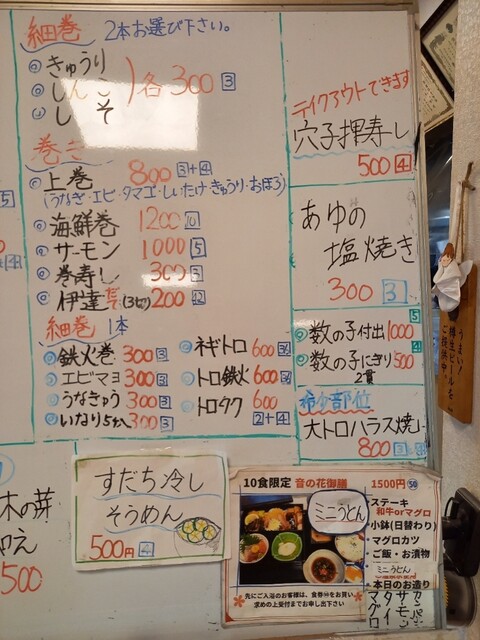 細巻 2本お選び下さい。
◎きゅうり
◎しんこ 各300 3
◎しそ
巻き
◎上巻 800 3+4
(うなぎ・エビ・タマゴ・しいたけ・きゅうり・おぼろ)
◎海鮮巻 1200 10
◎サーモン 1000 5
◎巻寿し 300 3
◎伊達 (3切) 200 2
細巻 1本
◎鉄火巻 300 3
◎エビマヨ 300 3
◎うなきゅう 300 3
◎いなり5ケ入 300 3
◎ネギトロ 600
◎トロ鉄火 600
◎トロタク 600
2+4
テイクアウトできます
穴子押寿し
500 4
あゆの
塩焼き
300 3
数の子付出 1000 5
数の子にぎり 500 4
2貫
希少部位
大トロハラス焼
800
木の芽
和え
500
すだち冷し
そうめん
500円
10食限定 音の花御膳 1500円 50
ミニうどん
・ステーキ
和牛orマグロ
・小鉢(日替わり)
・マグロカツ
・ご飯・お漬物
ミニうどん
・本日のお造り
マグロ
タイ
サーモン
カンパチ
先にご入浴のお客様は、食券をお買い
求めの上受付までお申し出下さい
うまい!
樽生ビールを
ご提供中。